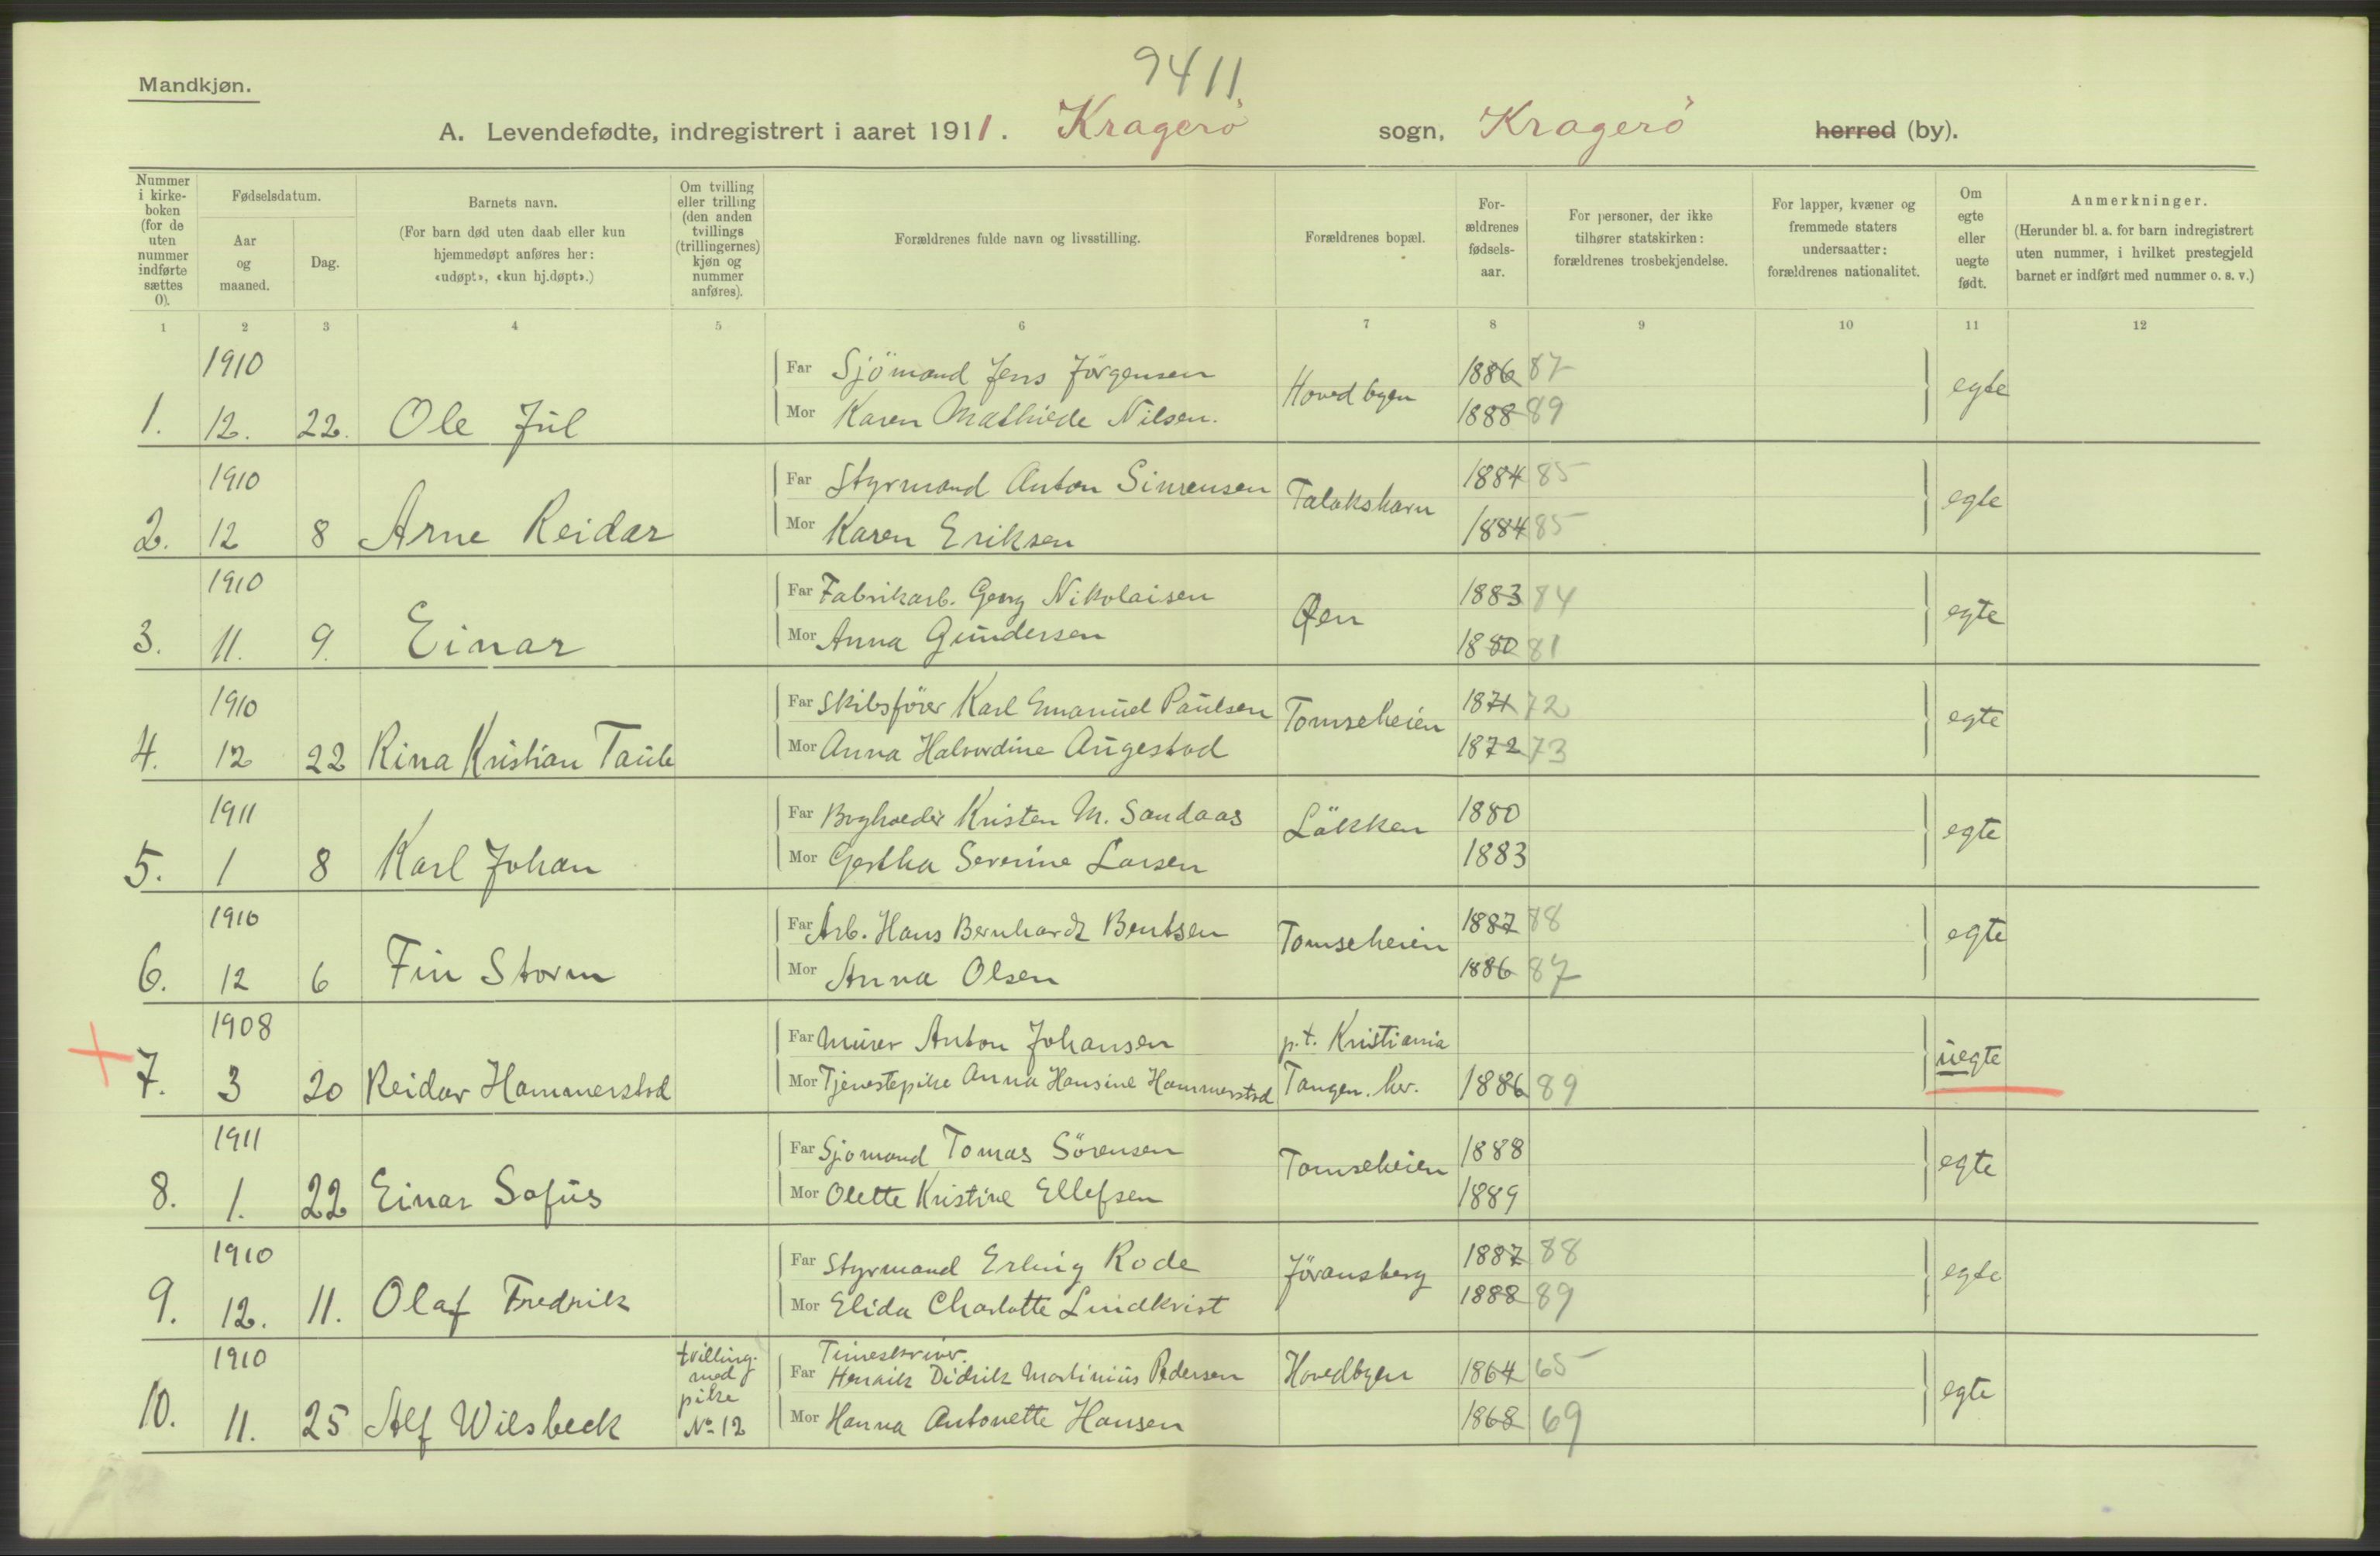 9411
Mandkjøn.
A. Levendefødte, indregistrert i aaret 1911. Kragerö sogn, Kragerö herred (by).
Nummer i kirke-boken (for de uten nummer indførte sættes 0).
Fødselsdatum.
Aar og maaned.
Dag.
Barnets navn.
(For barn død uten daab eller kun hjemmedøpt anføres her: «udøpt», «kun hj.døpt».)
Om tvilling eller trilling (den anden tvillings (trillingernes) kjøn og nummer anføres).
Forældrenes fulde navn og livsstilling.
Forældrenes bopæl.
For-ældrenes fødsels-aar.
For personer, der ikke tilhører statskirken: forældrenes trosbekjendelse.
For lapper, kvæner og fremmede staters undersaatter: forældrenes nationalitet.
Om egte eller uegte født.
Anmerkninger.
(Herunder bl. a. for barn indregistrert uten nummer, i hvilket prestegjeld barnet er indført med nummer o. s. v.)
1 2 3 4 5 6 7 8 9 10 11 12
1910 Far Sjömand Jens Jörgensen Hovedbyen 1886 87 egte
1. 12. 22. Ole Jul Mor Karen Mathilde Nilsen. 1888 89
1910 Far Styrmand Anton Simensen Talakshavn 1884 85 egte
2. 12 8 Arne Reidar Mor Karen Eriksen 1884 85
1910 Far Fabrikarb. Georg Nikolaisen Øen 1883 84 egte
3. 11. 9. Einar Mor Anna Gundersen 1880 81
1910 Far Skibsförer Karl Emanuel Paulsen Tomseheien 1871 72 egte
4. 12 22 Rina Kristian Taule Mor Anna Halvordine Augestad 1872 73
1911 Far Bogholder Kristen M. Sandaas Lökken 1880 egte
5. 1 8 Karl Johan Mor Gertha Severine Larsen 1883
1910 Far Arb. Hans Bernhardt Bentsen Tomseheien 1887 88 egte
6. 12 6 Fin Storm Mor Anna Olsen 1886 87
1908 Far Murer Anton Johansen p.t. Kristiania uegte
7. 3 20 Reidar Hammerstad Mor Tjenestepike Anna Hansine Hammerstad Tangen. her. 1886 89
1911 Far Sjömand Tomas Sörensen Tomseheien 1888 egte
8. 1. 22 Einar Sofus Mor Olette Kristine Ellefsen 1889
1910 Far Styrmand Erling Rode Jöransberg 1887 88 egte
9. 12. 11. Olaf Fredrik Mor Elida Charlotte Lindkvist 1888 89
1910 tvilling med pike No 12 Far Timeskriver. Henrik Didrik Martinius Pedersen Hovedbyen 1864 65 egte
10. 11. 25 Alf Wilsbeck Mor Hanna Antonette Hansen 1868 69